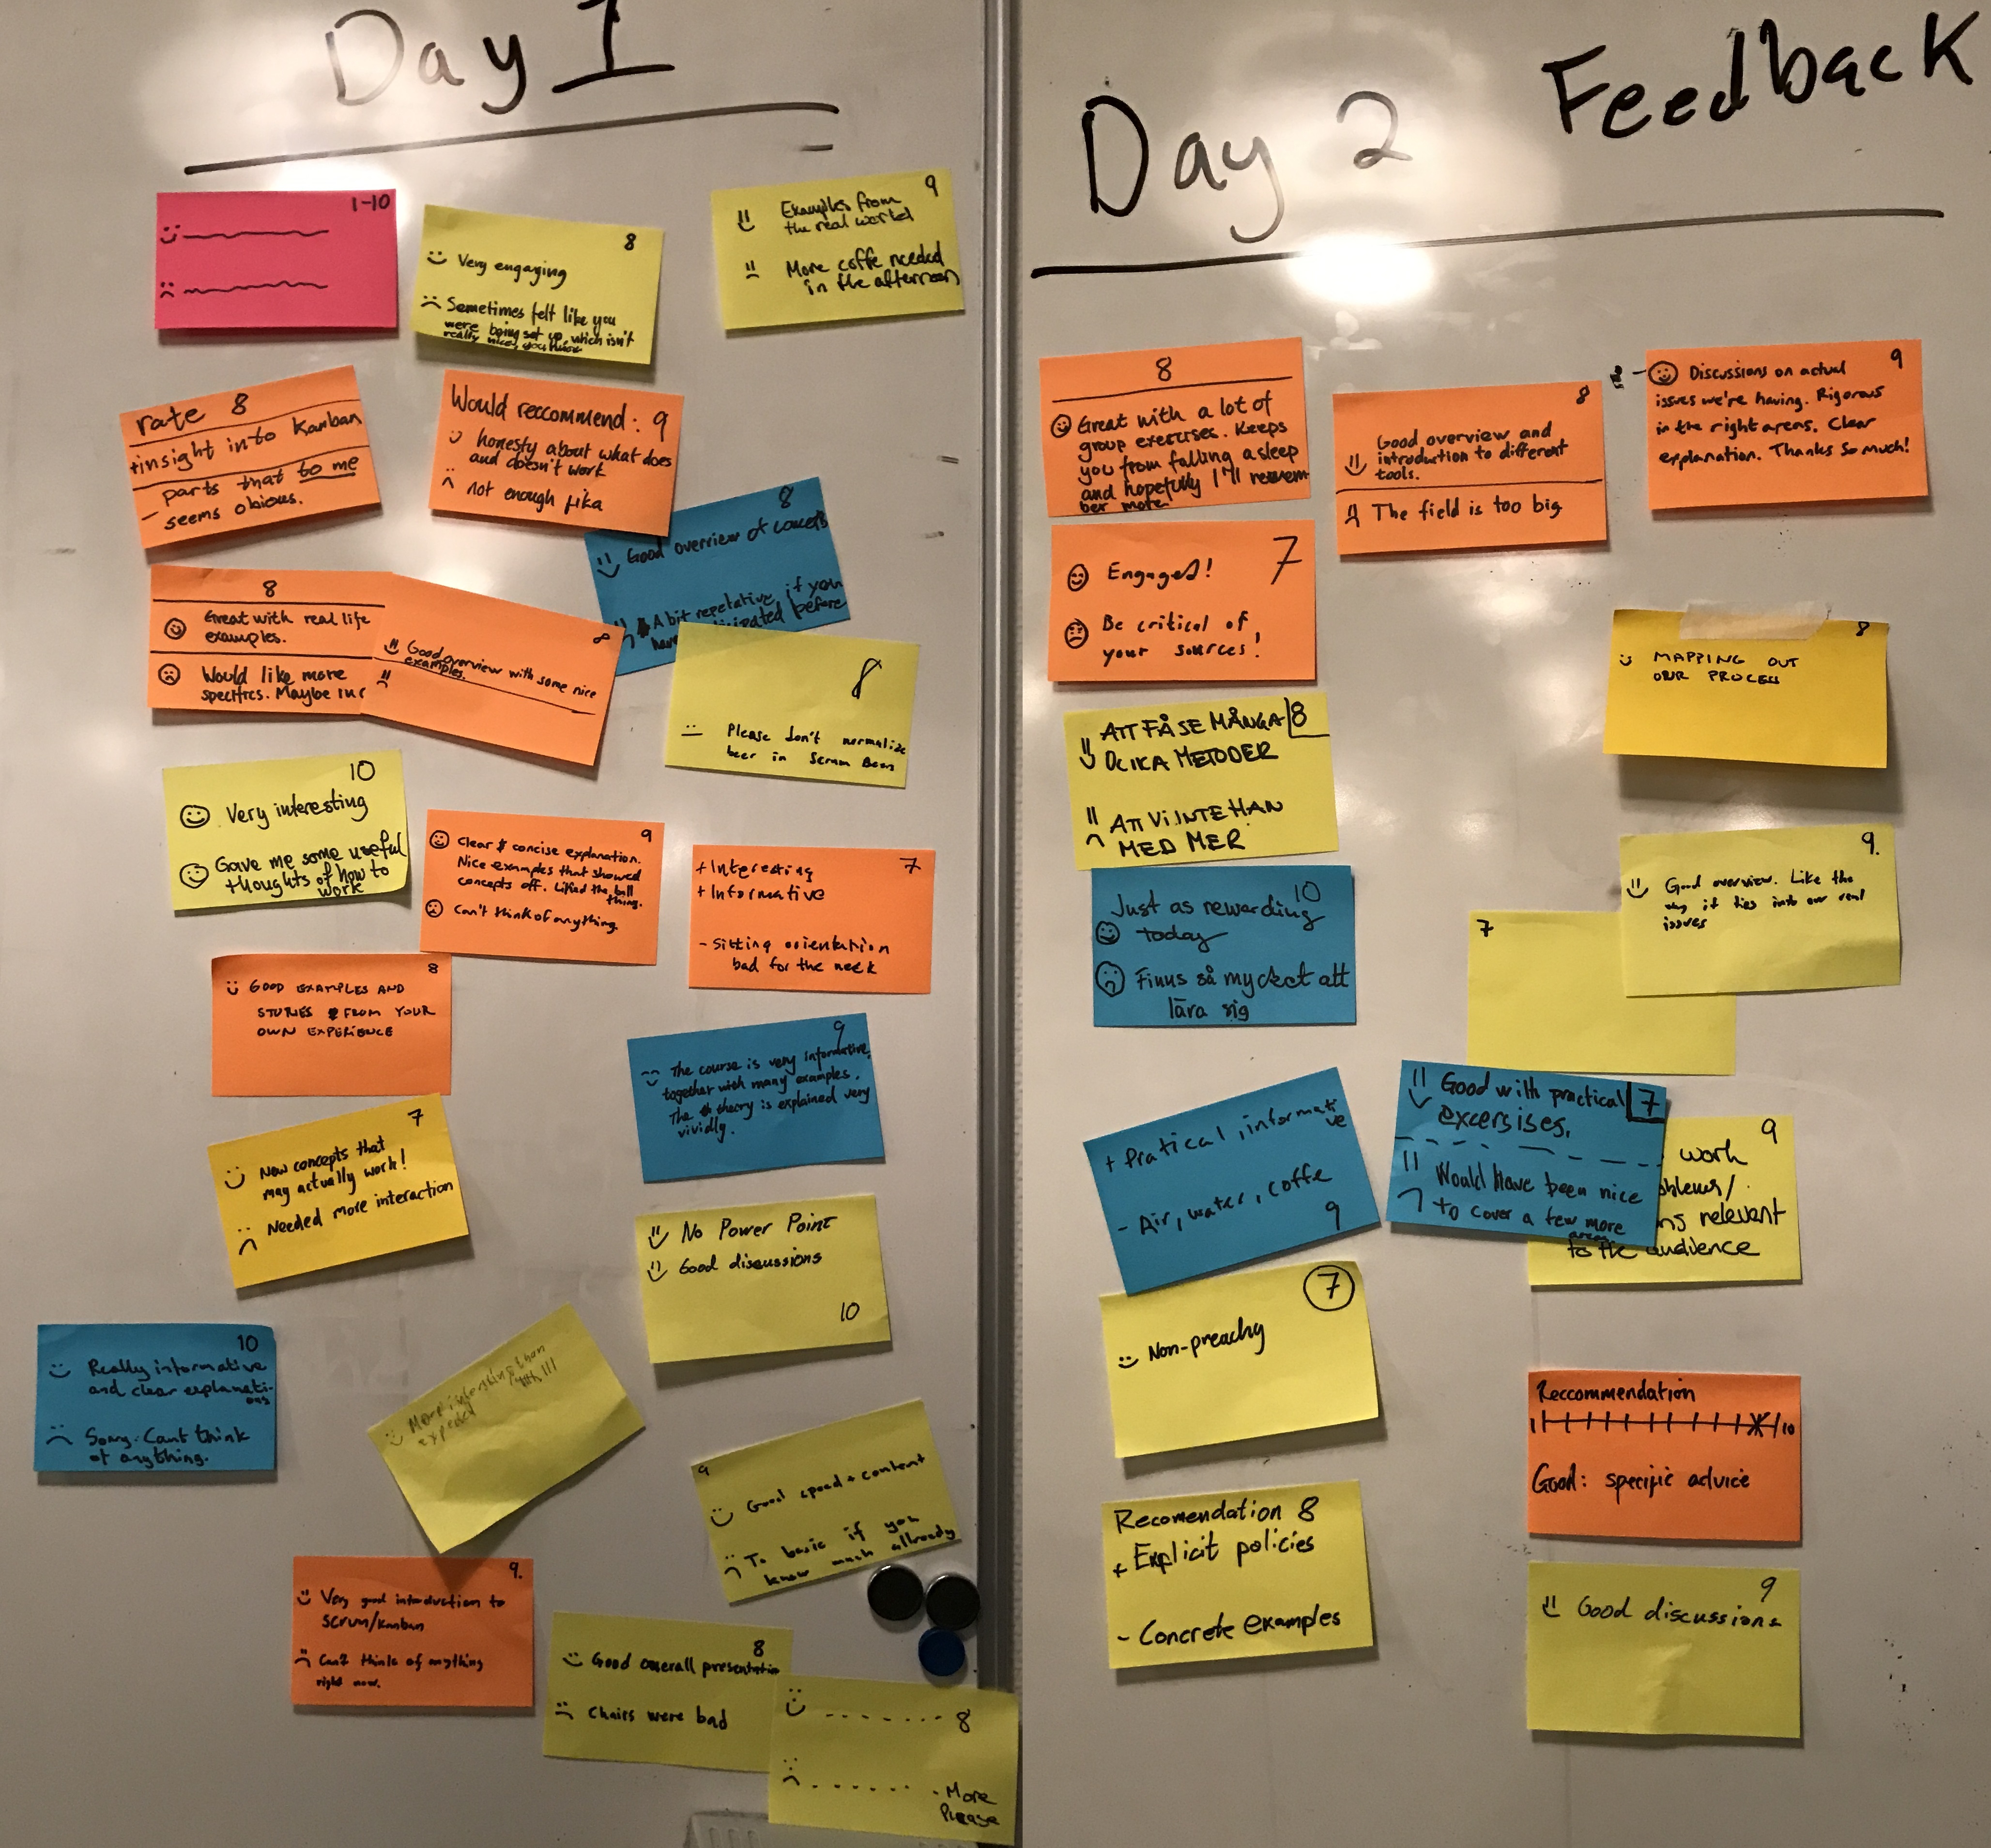 Day 1
1-10
8
Very engaging
Sometimes felt like you
were being set up, which isn't
really nice, you know
9
Examples from
the real world
More coffe needed
in the afternoon
rate 8
+insight into Kanban
- parts that to me
seems obious.
Would reccommend: 9
honesty about what does
and doesn't work
not enough fika
8
Good overview of concepts
A bit repetative if you
have before
8
Great with real life
examples.
Would like more
specifics. Maybe
8
Good overview with some nice
examples.
8
Please don't normalize
beer in Scrum
10
Very interesting
Gave me some useful
thoughts of how to
work
9
Clear & concise explanation.
Nice examples that showed
concepts off. Liked the ball
thing.
Can't think of anything
7
+ Interesting
+ Informative
- Sitting orientation
bad for the neck
8
GOOD EXAMPLES AND
STORIES FROM YOUR
OWN EXPERIENCE
9
The course is very informative,
together with many examples.
The theory is explained very
vividly.
7
New concepts that
may actually work!
Needed more interaction
No Power Point
Good discussions
10
10
Really informative
and clear explanati-
ons
Sorry. Cant think
of anything.
More interesting than
expected
9
Good speed + content
To basic if you
know much allready
9.
Very good introduction to
scrum/kanban
Can't think of anything
right now.
8
Good overall presentation
Chairs were bad
8
- More
Please
Day 2 Feedback
8
Great with a lot of
group exercises. Keeps
you from falling asleep
and hopefully I'll remem
ber more
8
Good overview and
introduction to different
tools.
The field is too big
9
Discussions on actual
issues we're having. Rigorous
in the right areas. Clear
explanation. Thanks so much!
7
Engaged!
Be critical of
your sources!
8
MAPPING OUT
OUR PROCESS
8
ATT FÅ SE MÅNGA
OLIKA METODER
ATT VI INTE HAN
MED MER
9.
Good overview. Like the
way it ties into our real
issues
7
10
Just as rewarding
today
Finns så mycket att
lära sig
+ Pratical, informati
ve
- Air, water, coffe
9
7
Good with practical
excersises.
Would have been nice
to cover a few more
areas
9
work
relevant
to the audience
7
Non-preachy
Reccommendation
1 10
Good: specific advice
Recomendation 8
+ Explicit policies
- Concrete examples
9
Good discussions